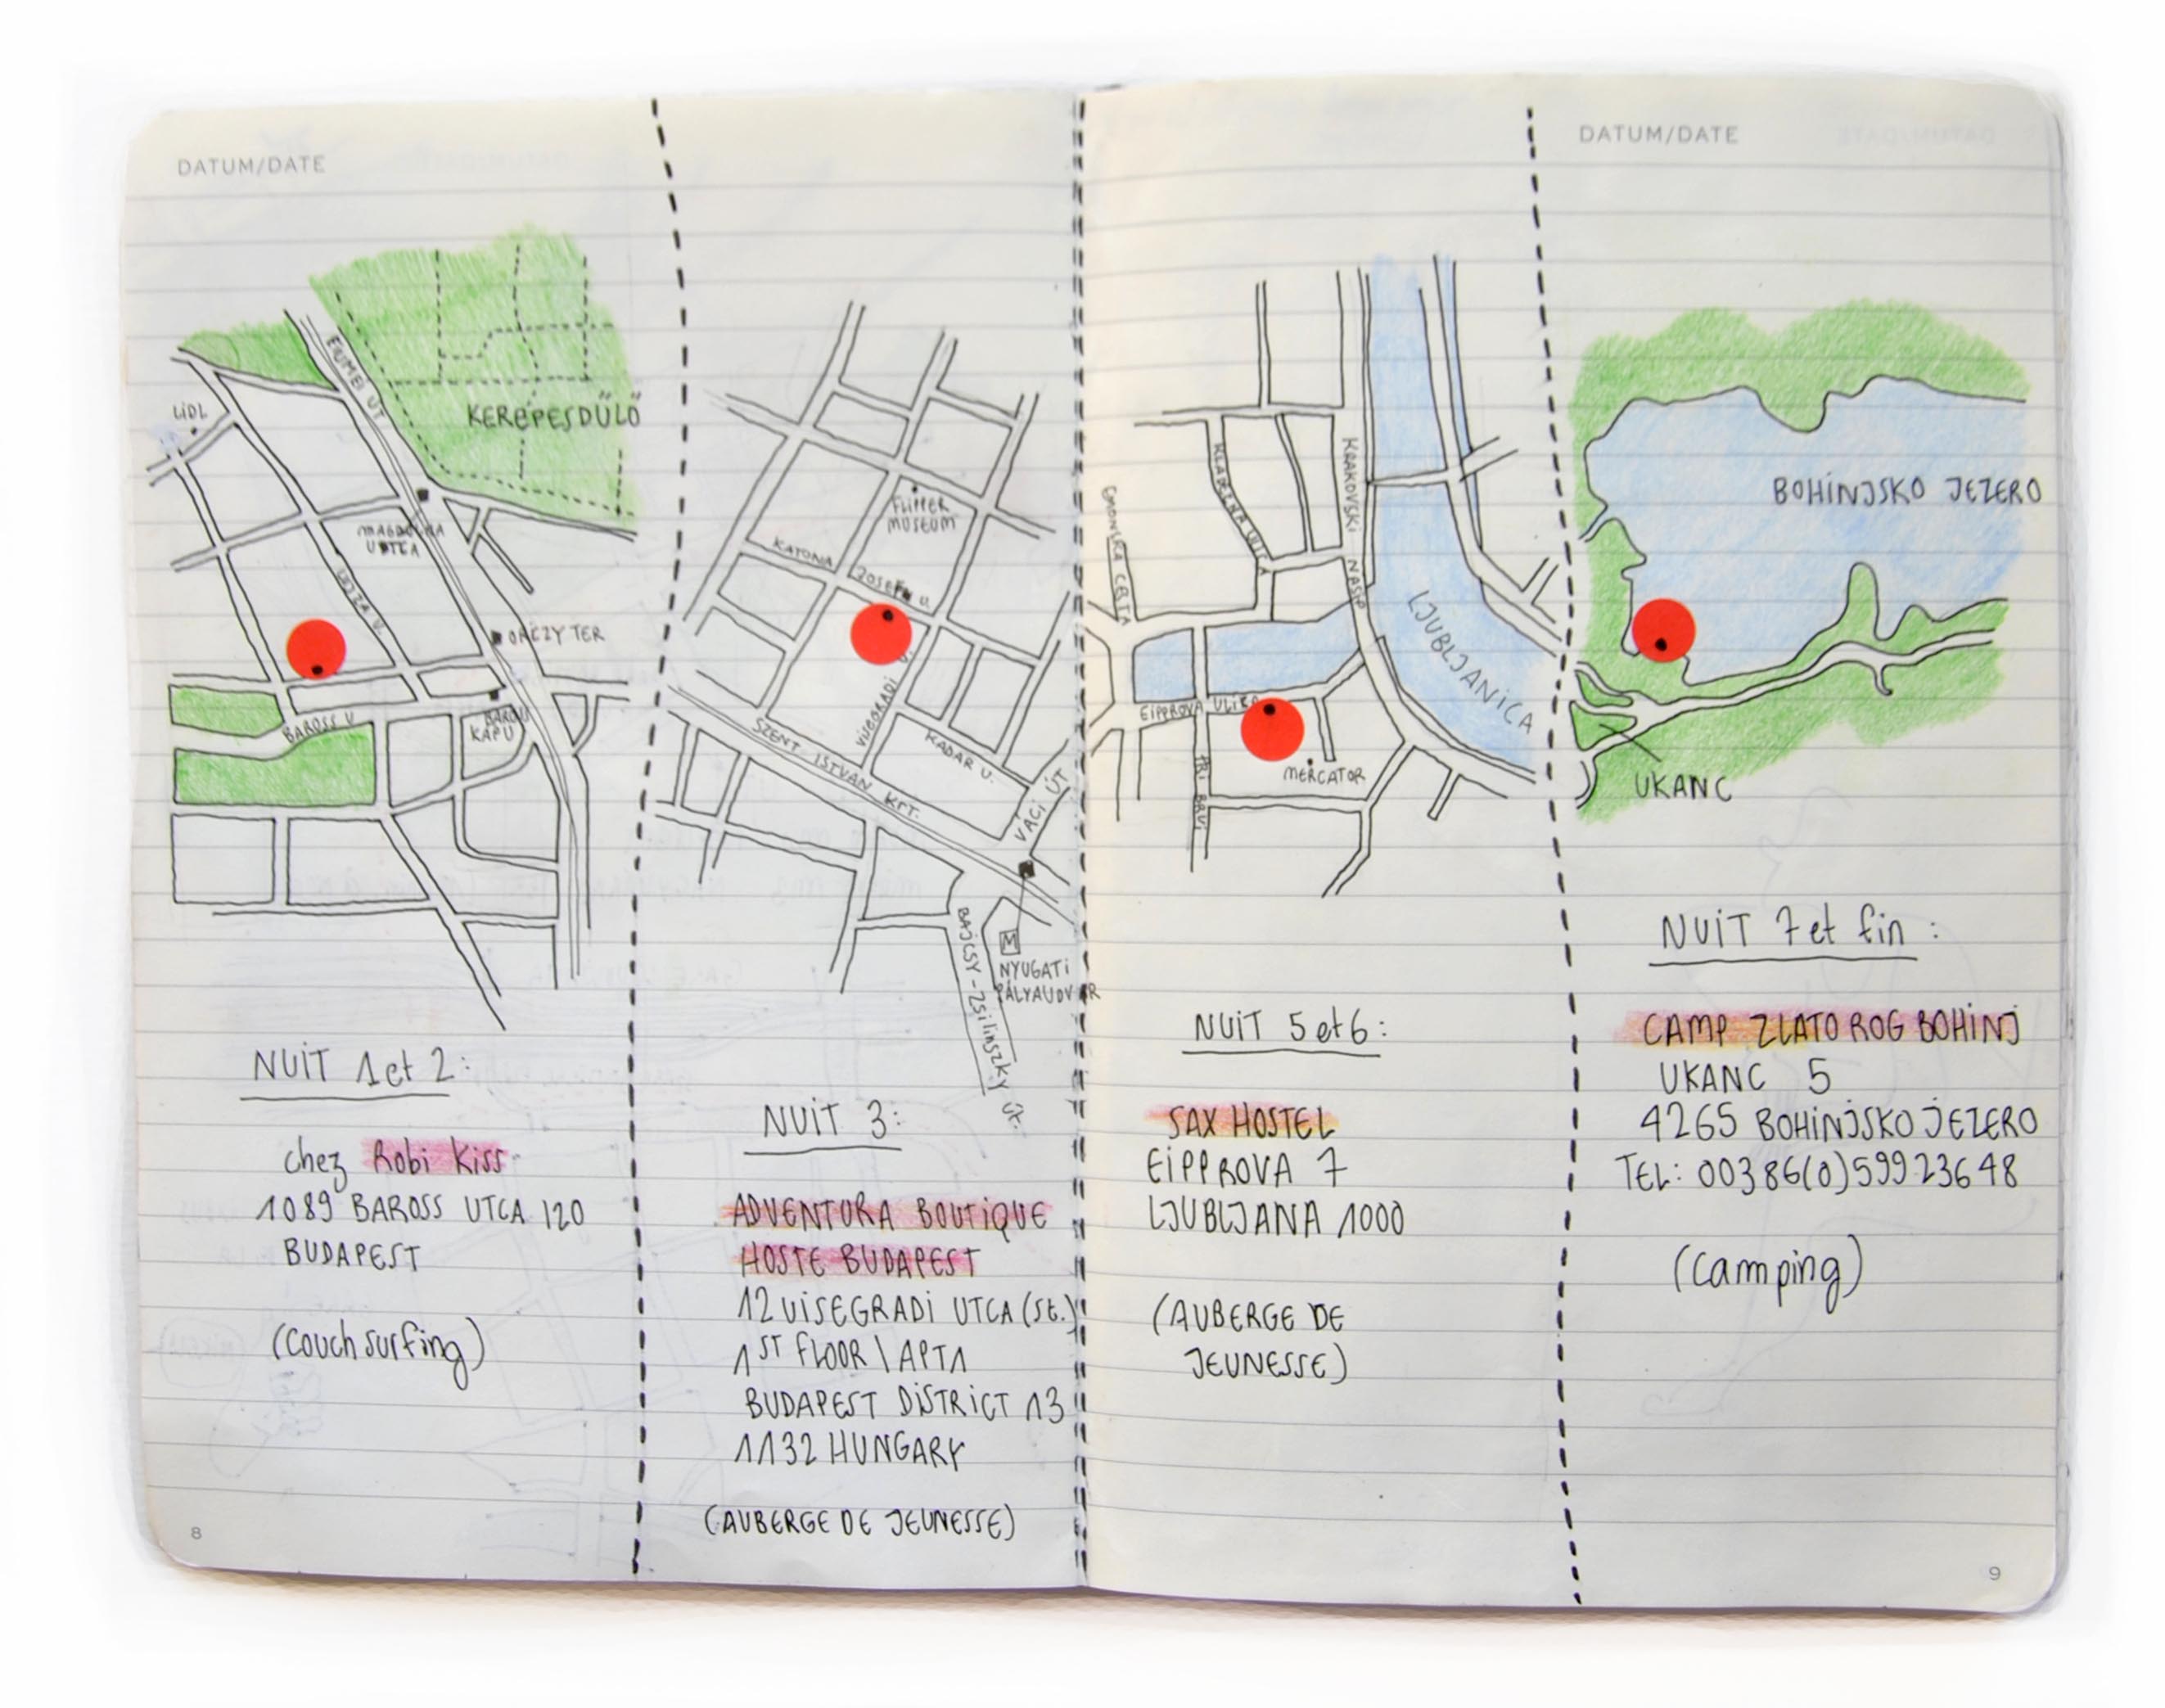 DATUM/DATE
LIDL
FIUMEI ÚT
KEREPESDŰLŐ
MAGDOLNA
UTCA
ORCZY TER
BAROSS U.
KAPU
8
NUIT 1 et 2:
chez Robi Kiss
1089 BAROSS UTCA 120
BUDAPEST
(Couch surfing)
FLIPPER
MUSEUM
KATONA JOSEFU U.
VISEGRADI U.
KADAR U.
SZENT ISTVAN KRT.
VACI ÚT
M
NYUGATI
PÁLYAUDVAR
BAJCSY-ZSILINSZKY ÚT.
NUIT 3:
ADVENTURA BOUTIQUE
HOSTE BUDAPEST
12 VISEGRADI UTCA (St.)
1ST FLOOR \ APT1
BUDAPEST DISTRICT 13
1132 HUNGARY
(AUBERGE DE JEUNESSE)
EMONSKA CESTA
KRAKOVSKI NASIP
LJUBLJANICA
EIPPROVA ULICA
MERCATOR
NUIT 5 et 6:
SAX HOSTEL
EIPPROVA 7
LJUBLJANA 1000
(AUBERGE DE
JEUNESSE)
DATUM/DATE
BOHINJSKO JEZERO
UKANC
NUIT 7 et fin :
CAMP ZLATOROG BOHINJ
UKANC 5
4265 BOHINJSKO JEZERO
TEL: 00386(0)59923648
(Camping)
9